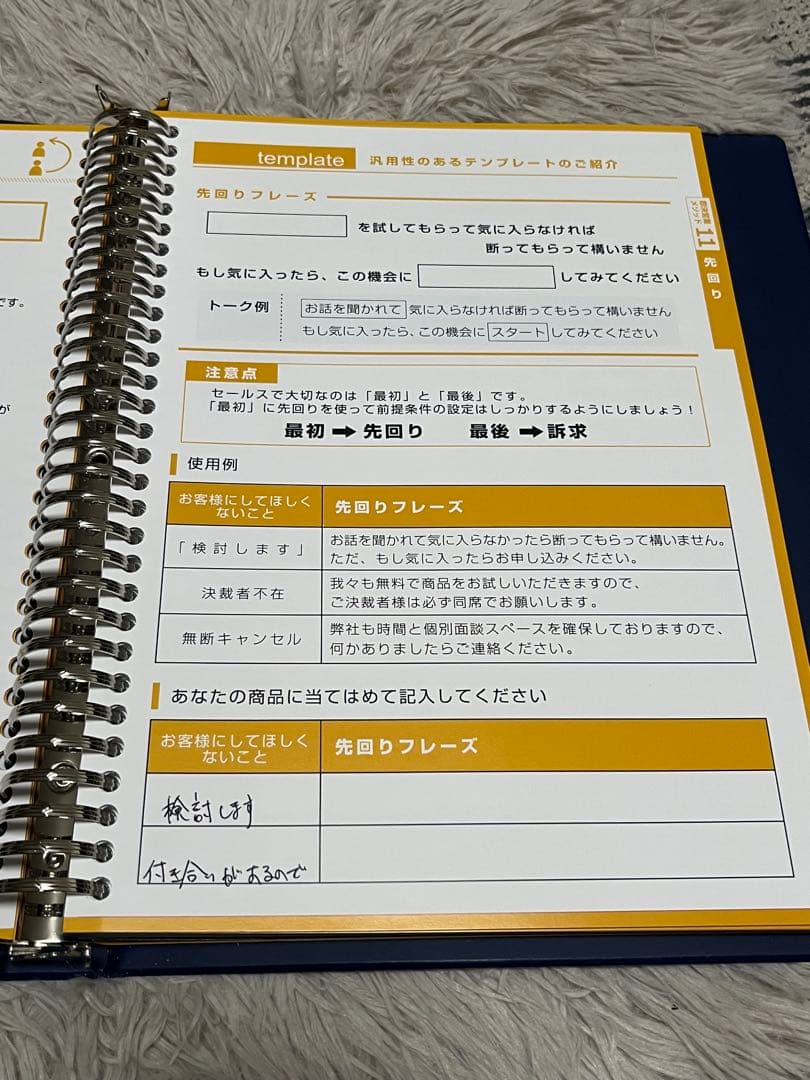 です。
が
template 汎用性のあるテンプレートのご紹介
先回りフレーズ
を試してもらって気に入らなければ
断ってもらって構いません
もし気に入ったら、この機会に してみてください
トーク例 お話を聞かれて 気に入らなければ断ってもらって構いません
もし気に入ったら、この機会に スタート してみてください
メソッド 11 先回り
注意点
セールスで大切なのは「最初」と「最後」です。
「最初」に先回りを使って前提条件の設定はしっかりするようにしましょう!
最初 ➡ 先回り 最後 ➡ 訴求
使用例
お客様にしてほしくないこと 先回りフレーズ
「検討します」 お話を聞かれて気に入らなかったら断ってもらって構いません。
ただ、もし気に入ったらお申し込みください。
決裁者不在 我々も無料で商品をお試しいただきますので、
ご決裁者様は必ず同席でお願いします。
無断キャンセル 弊社も時間と個別面談スペースを確保しておりますので、
何かありましたらご連絡ください。
あなたの商品に当てはめて記入してください
お客様にしてほしくないこと 先回りフレーズ
検討します
付き合いがあるので